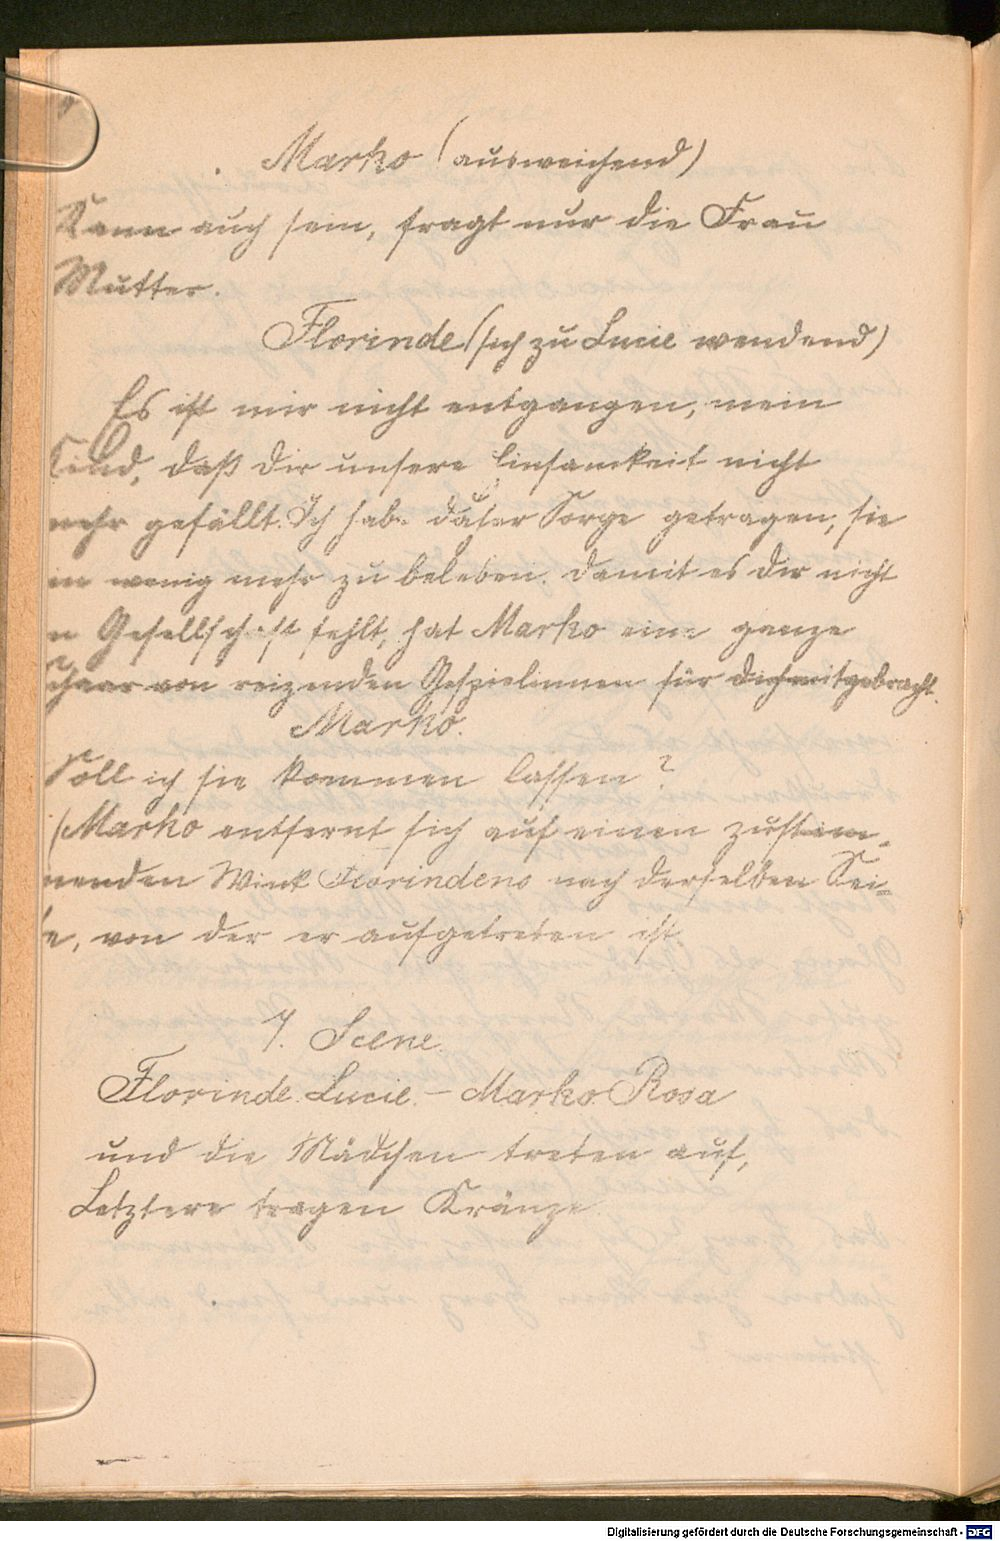 Marko (ausweichend)
Kann auch sein, fragt nur die Frau
Mutter.
Florinde (sich zu Lucie wendend)
Es ist mir nicht entgangen, mein
Kind, daß dir unsere Einsamkeit nicht
mehr gefällt. Ich habe daher Sorge getragen, sie
ein wenig mehr zu beleben. Damit es dir nicht
an Gesellschaft fehlt, hat Marko eine ganze
Schaar von reizenden Gespielinnen für dich mitgebracht.
Marko.
Soll ich sie kommen lassen?
(Marko entfernt sich auf einen zustim-
menden Wink Florindens nach derselben Sei=
te, von der er aufgetreten ist.
7. Scene.
Florinde. Lucie. – Marko Rosa
und die Mädchen treten auf,
Letztere tragen Kränze.
Digitalisierung gefördert durch die Deutsche Forschungsgemeinschaft - DFG